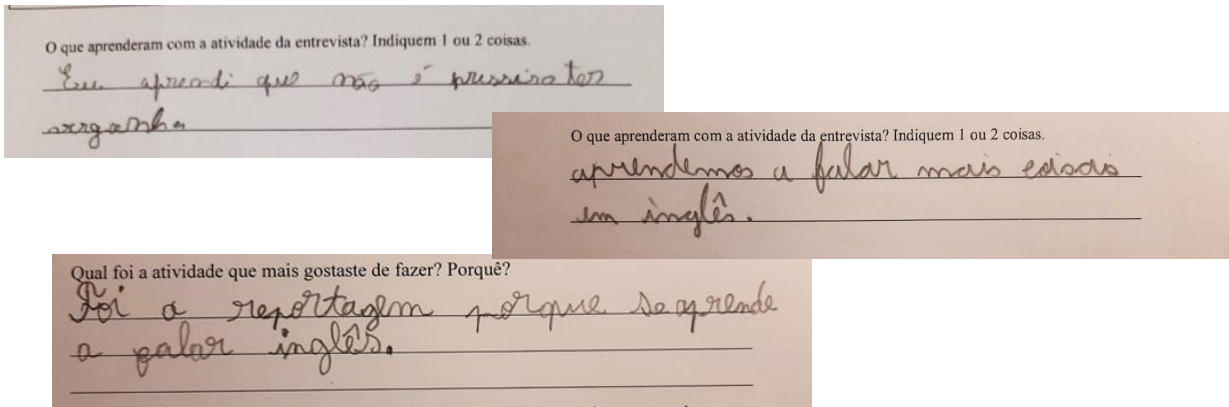 O que aprenderam com a atividade da entrevista? Indiquem 1 ou 2 coisas.
Eu aprendi que não é pressiso ter
vergonha
O que aprenderam com a atividade da entrevista? Indiquem 1 ou 2 coisas.
aprendemos a falar mais coisas
em inglês.
Qual foi a atividade que mais gostaste de fazer? Porquê?
Foi a reportagem porque se aprende
a falar inglês.